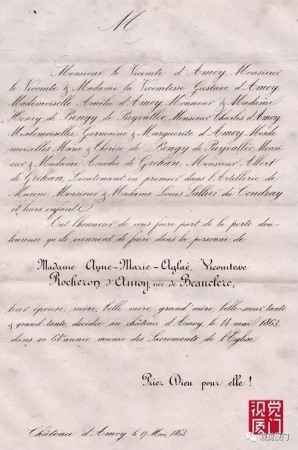 M
Monsieur le Vicomte d'Amoy, Monsieur
le Vicomte & Madame la Vicomtesse Gustave d'Amoy,
Mademoiselle Amélie d'Amoy, Monsieur & Madame
Henry de Bengy de Puyvallée, Monsieur Charles d'Amoy,
Mesdemoiselles Germaine & Marguerite d'Amoy, Mesde-
moiselles Marie & Thérèse de Bengy de Puyvallée, Monsi-
eur & Madame de Gréban, Monsieur Albert
de Gréban, Lieutenant en premier dans l'Artillerie de
Marine, Monsieur & Madame Louis Lallier du Coudray
et leurs enfants,
Ont l'honneur de vous faire part de la perte dou-
loureuse qu'ils viennent de faire dans la personne de
Madame Anne-Marie-Aglaé, Vicomtesse
Rocheron d'Amoy née de Beauclerc,
leur épouse, mère, belle mère, grand'mère, belle-sœur, tante
& grand'tante, décédée au château d'Amoy, le 14 mai 1863,
dans sa année, munie des Sacrements de l'Eglise.
Priez Dieu pour elle !
Château d'Amoy, le 17 Mai, 1863
视觉医门
视觉医门